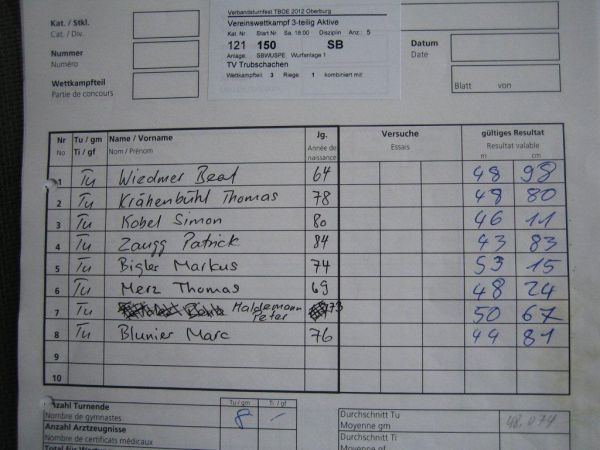 Verbandsturnfest TBOE 2012 Oberburg
Vereinswettkampf 3-teilig Aktive
Kat. Nr. Start Nr Sa, 18:00 Disziplin Anz.: 5
121 150 SB
Anlage: SBWUSPE Wurfanlage 1
TV Trubschachen
Wettkampfteil: 3 Riege: 1 kombiniert mit:
Kat. / Stkl.
Cat. / Div.
Nummer
Numéro
Wettkampfteil
Partie de concours
Datum
Date
Blatt von
Nr Tu / gm Name / Vorname Jg. Versuche gültiges Resultat
No Ti / gf Nom / Prénom Année de naissance Essais Resultat valable
m cm
1 Tu Widmer Beat 64 48 98
2 Tu Krähenbühl Thomas 78 48 80
3 Tu Kobel Simon 80 46 11
4 Tu Zaugg Patrick 84 43 83
5 Tu Bigler Markus 74 53 15
6 Tu Merz Thomas 69 48 24
7 Tu Haldemann Peter 73 50 67
8 Tu Blunier Marc 76 44 81
9
10
Anzahl Turnende Tu / gm Ti / gf
Nombre de gymnastes 8 -
Anzahl Arztzeugnisse
Nombre de certificats médicaux
Durchschnitt Tu 48,074
Moyenne gm
Durchschnitt Ti
Moyenne gf